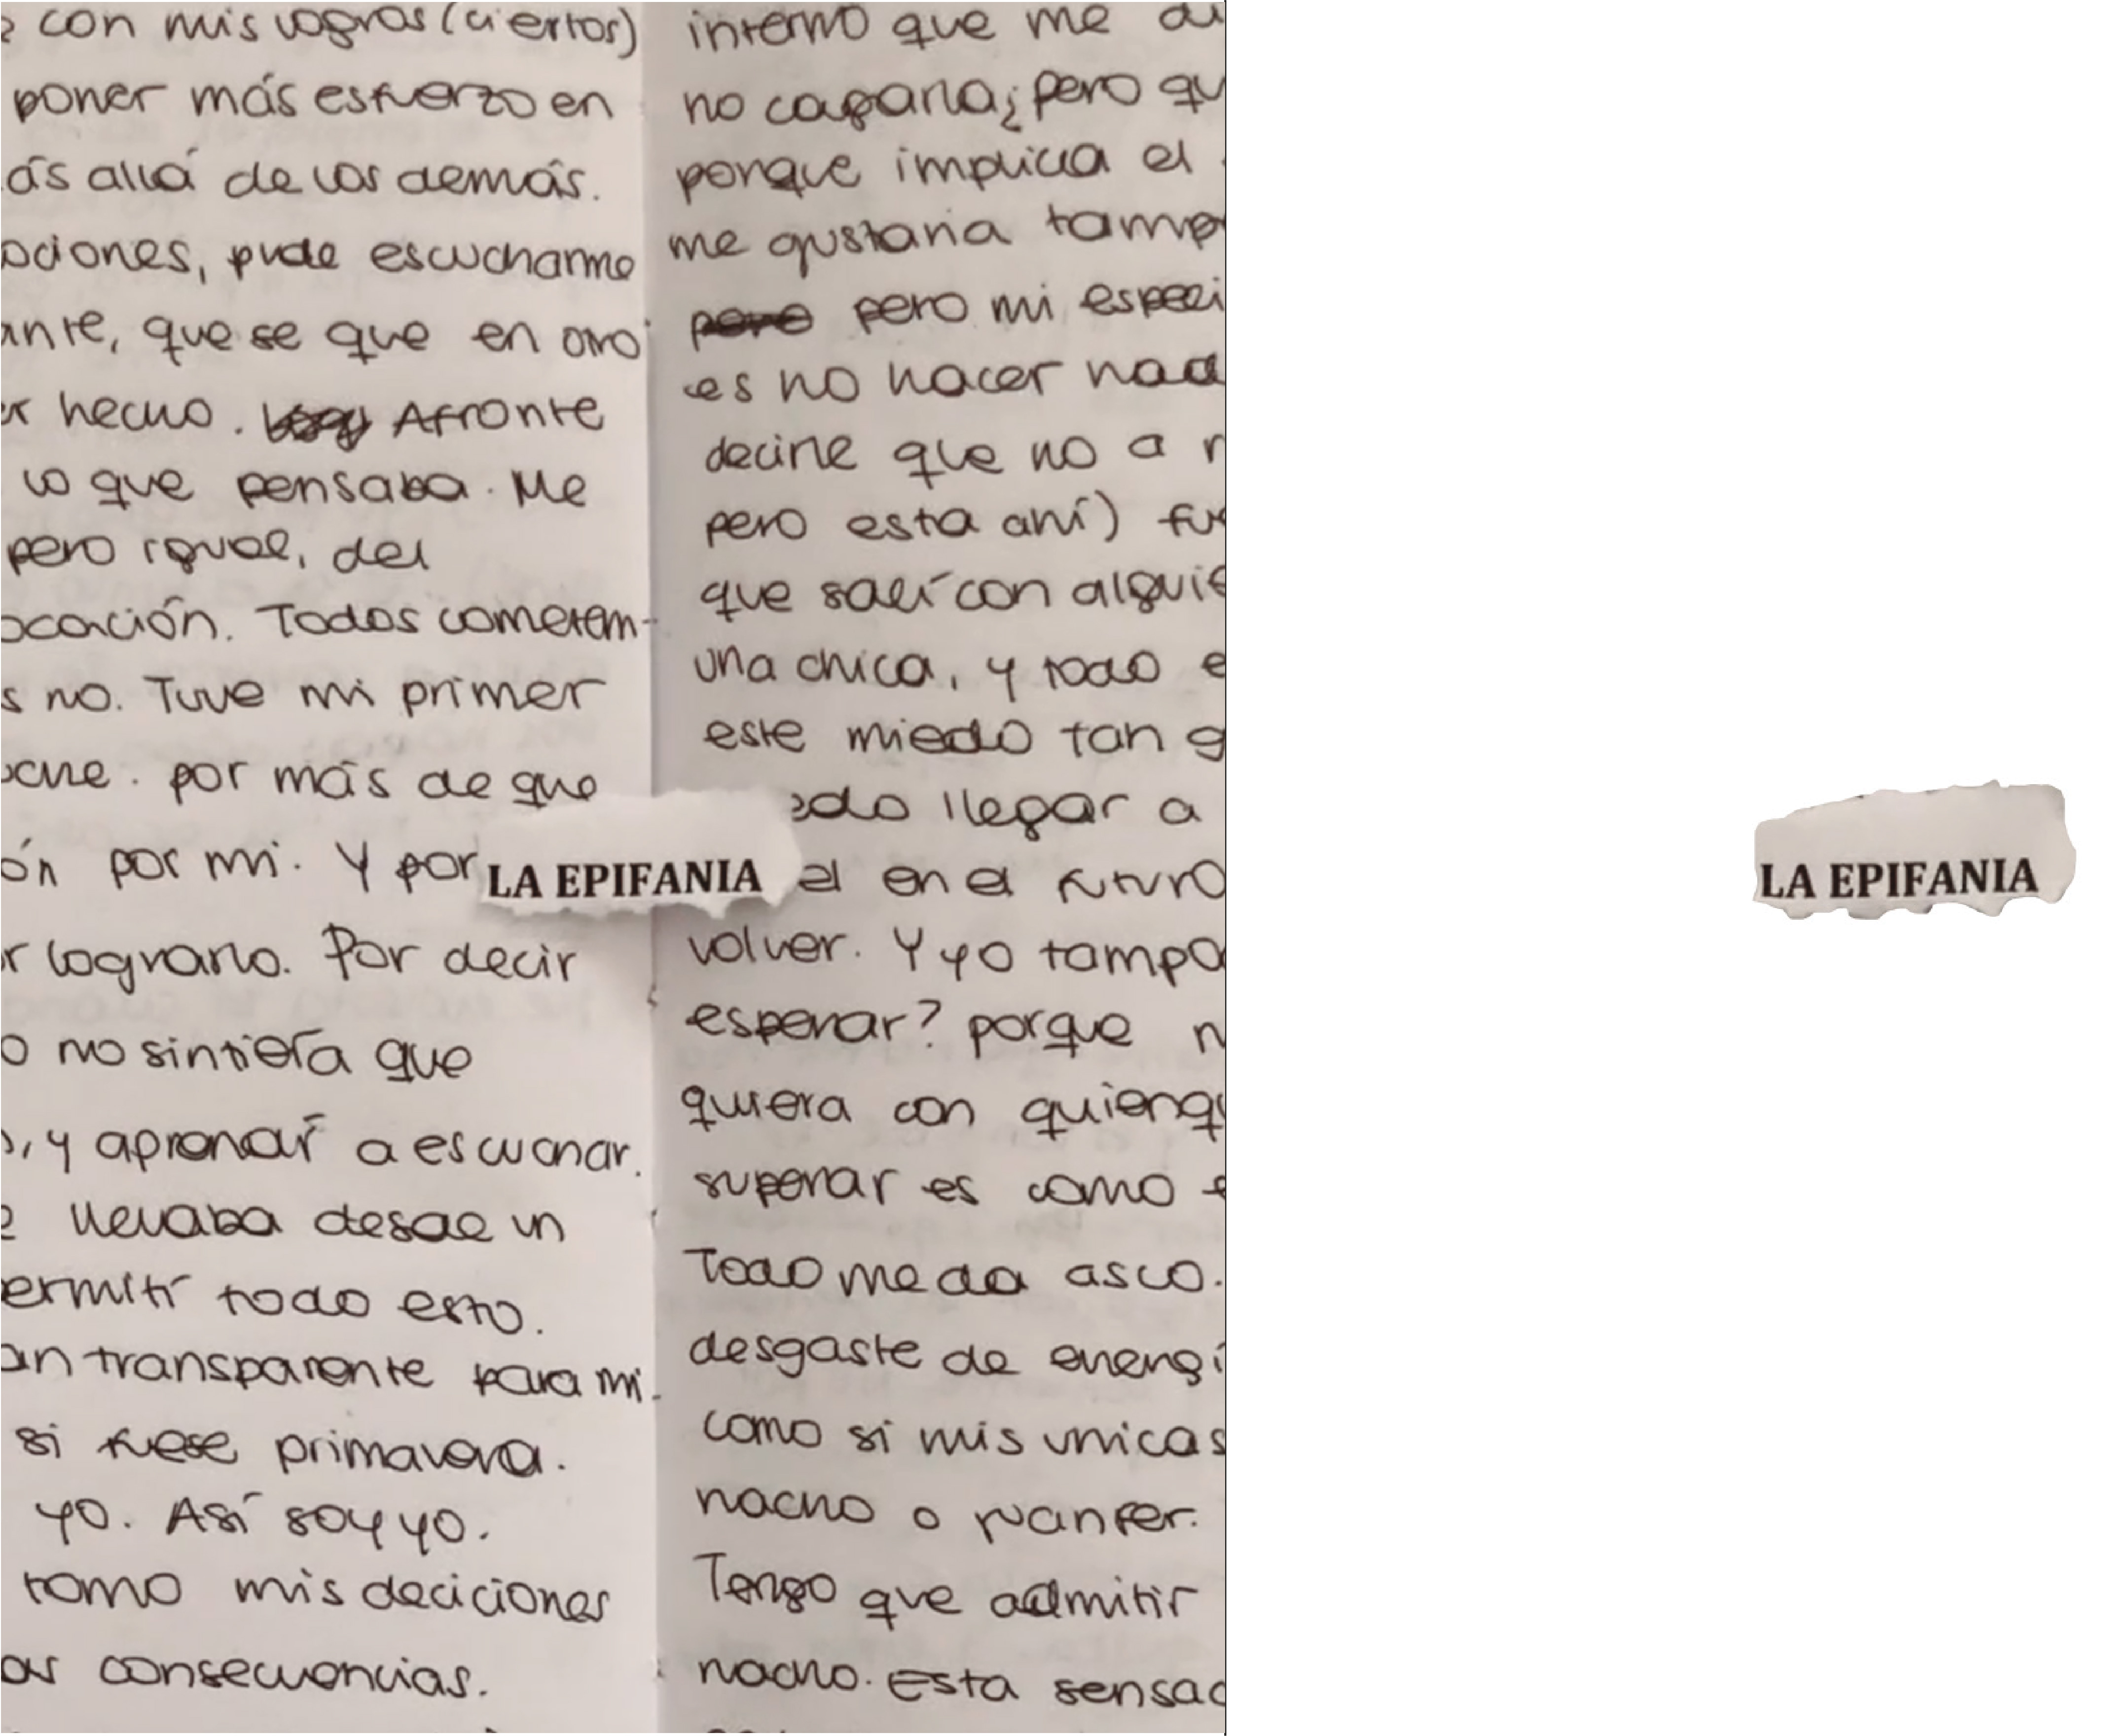 con mis logros (ciertos)
poner más esfuerzo en
ás allá de los demás.
ociones, pude escucharme
ante, que se que en otro
er hecho. Afronte
lo que pensaba. Me
pero igual, del
ocación. Todos cometem-
s no. Tuve mi primer
oche. por más de que
ón por mi. Y por
r lograrlo. Por decir
o no sintiera que
, y aprender a escuchar.
llevaba desde un
ermití todo esto.
an transparente para mi.
si fuese primavera.
yo. Así soy yo.
tomo mis deciciones
as consecuencias.
interno que me di
no cagarla ¿pero qu
porque implica el
me gustaria tamp
pero pero mi especi
es no hacer nad
decirle que no a
pero esta ahí) fu
que salí con alguie
una chica, y todo e
este miedo tan g
edo llegar a
el en el futuro
volver. Y yo tampo
esperar? porque n
quiera con quienqu
superar es como e
Todo me da asco.
desgaste de energí
como si mis unicas
nacho o juanfer.
Tengo que admitir
nacho. Esta sensac
LA EPIFANIA
LA EPIFANIA